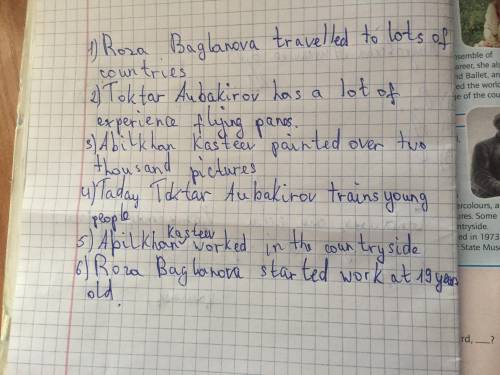 1) Roza Baglanova travelled to lots of
countries
2) Toktar Aubakirov has a lot of
experience flying panes.
3) Abilkhan Kasteev painted over two
thousand pictures
4) Taday Toktar Aubakirov trains young
people
Kasteev
5) Abilkhan worked in the countryside
6) Roza Baglanova started work at 19 years
old.
nsemble of
areer, she als
nd Ballet, an
ed the world
ge of the cou
ercolours, a
ures. Some
ntryside.
ed in 1973
State Muse
rd, ___?